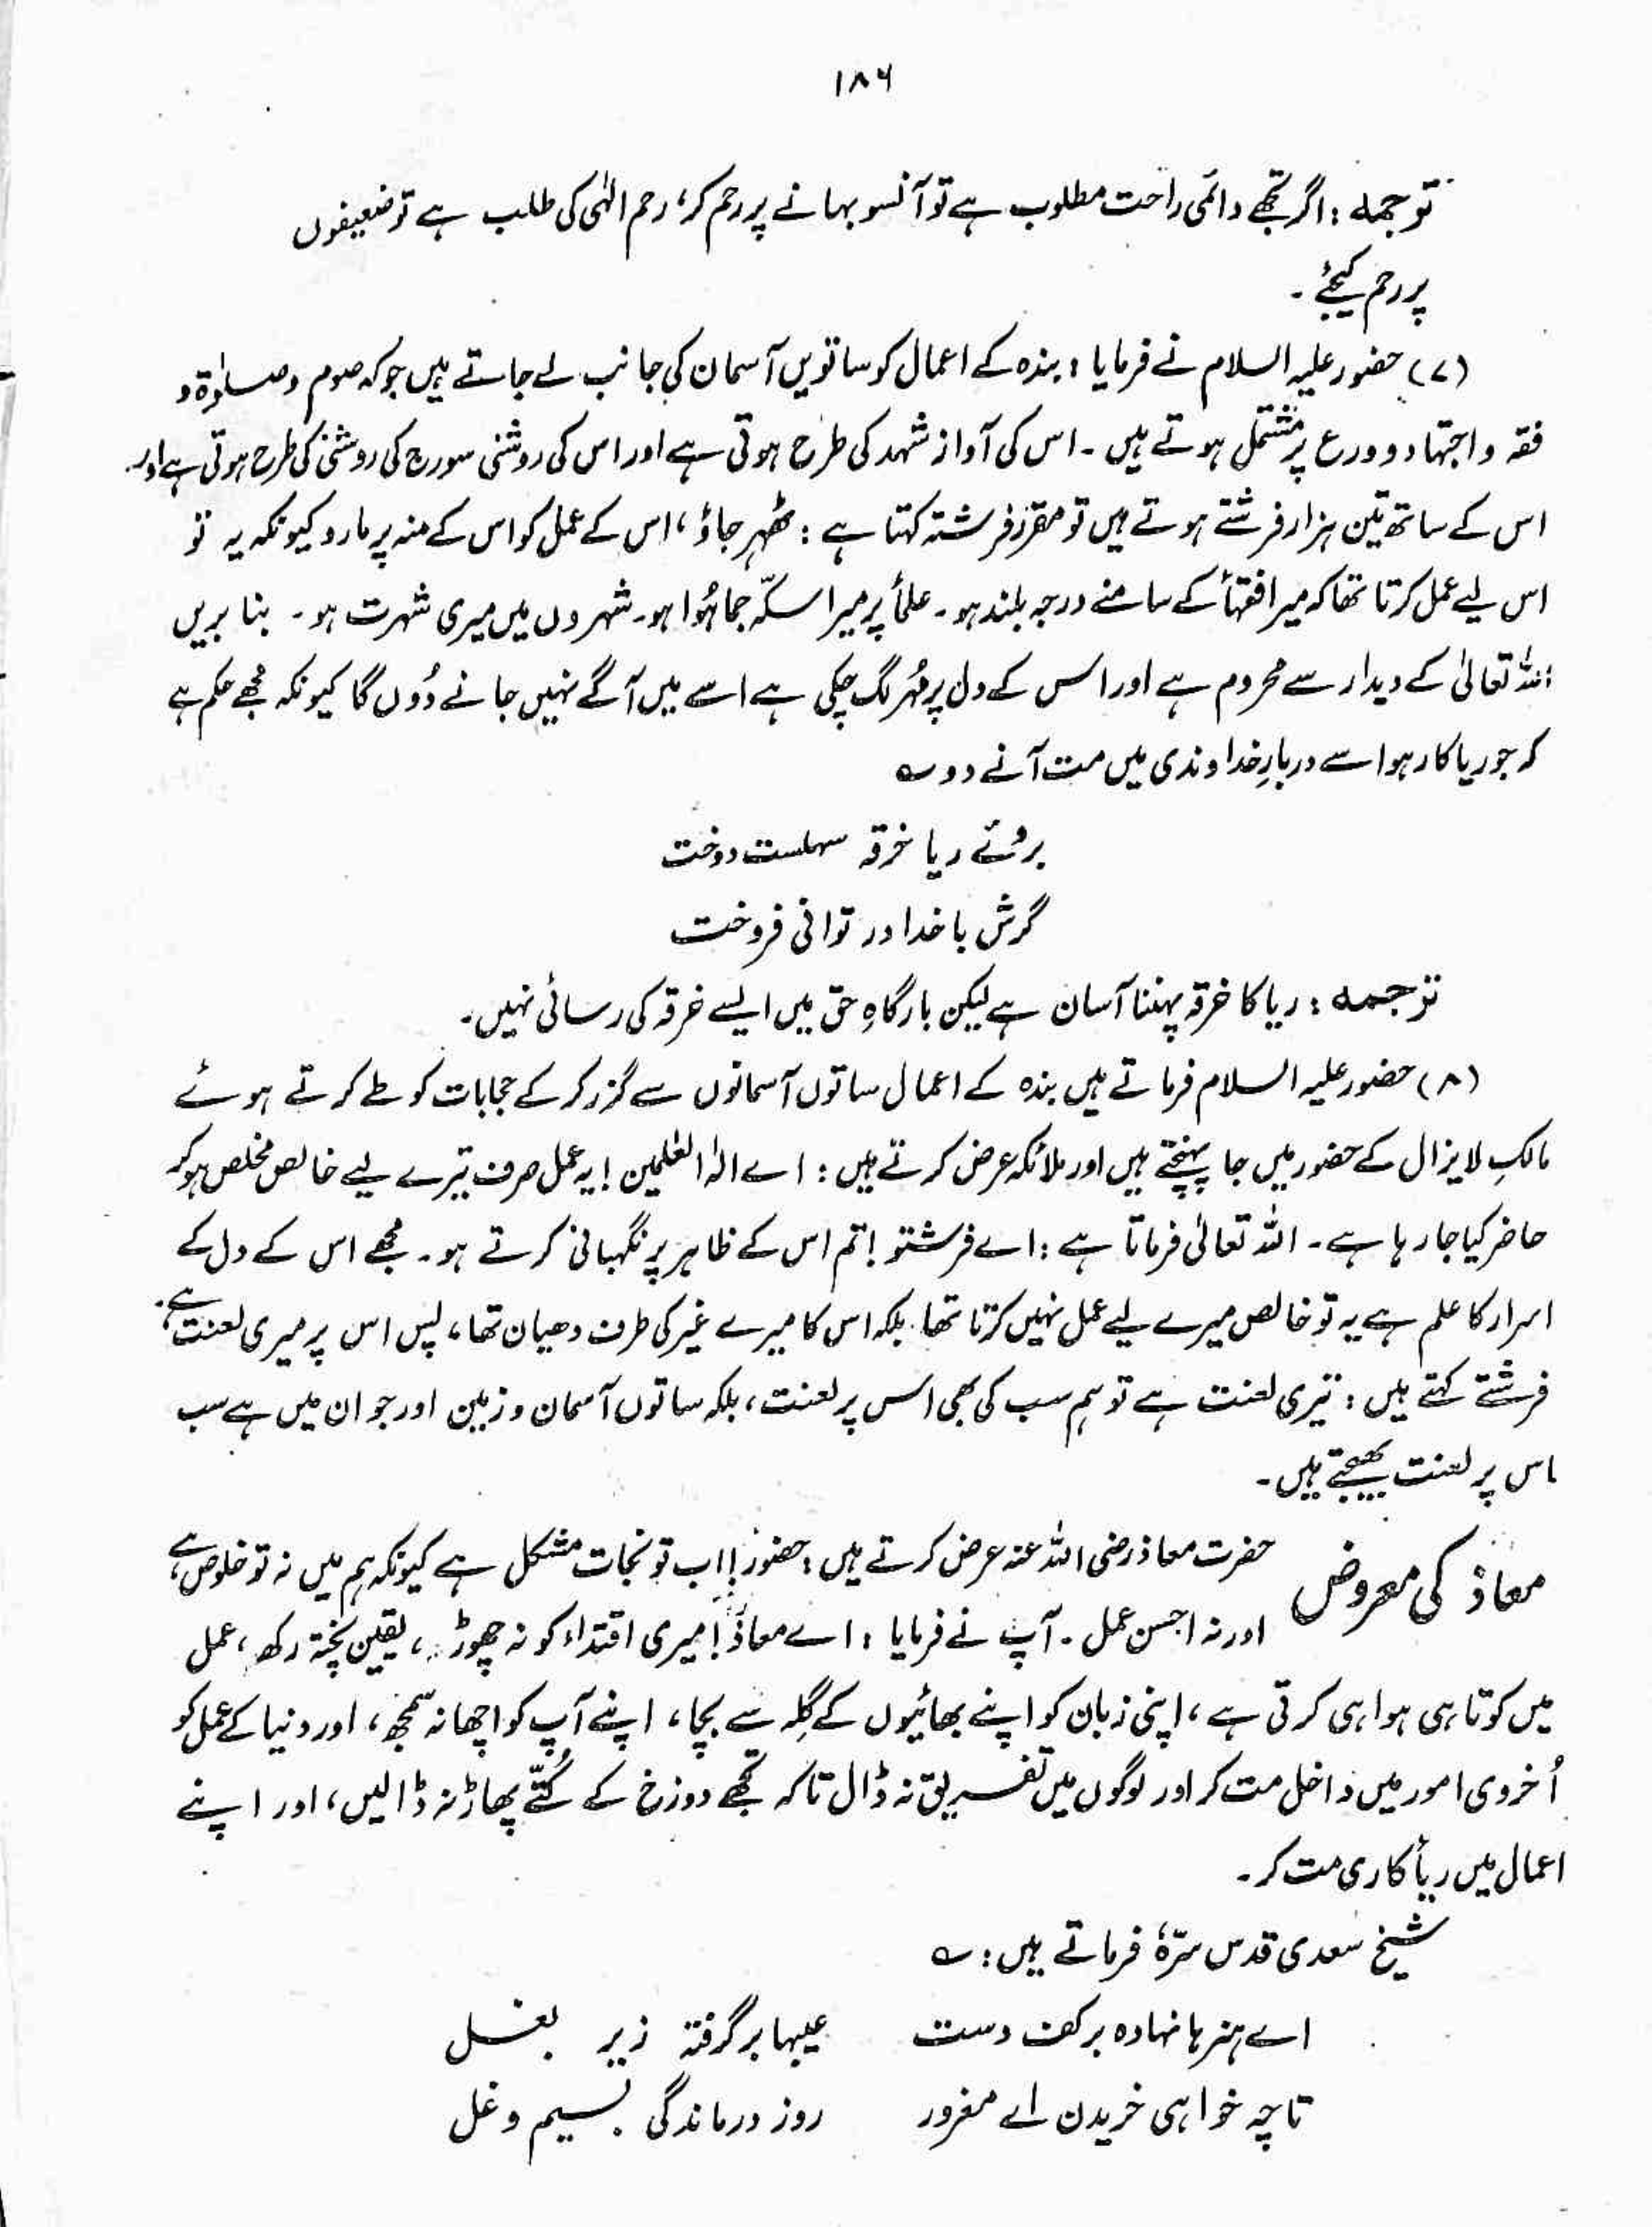 ۱۸۶
ترجمہ : اگر تجھے دائمی راحت مطلوب ہے تو آنسو بہانے پر رحم کر، رحم الٰہی کی طلب ہے تو ضعیفوں
پر رحم کیجئے ۔
(۷) حضور علیہ السلام نے فرمایا : بندہ کے اعمال کو ساتویں آسمان کی جانب لے جاتے ہیں جو کہ صوم و صلوٰۃ و
فقہ و اجتہاد و ورع پر مشتمل ہوتے ہیں ۔ اس کی آواز شہد کی طرح ہوتی ہے اور اس کی روشنی سورج کی روشنی کی طرح ہوتی ہے اور
اس کے ساتھ تین ہزار فرشتے ہوتے ہیں تو مقرر فرشتہ کہتا ہے : ٹھہر جاؤ ، اس کے عمل کو اس کے منہ پر مارو کیونکہ یہ تو
اس لیے عمل کرتا تھا کہ میرا فقہأ کے سامنے درجہ بلند ہو ۔ علمأ پر میرا سکّہ جما ہُوا ہو۔ شہروں میں میری شہرت ہو ۔ بنا بریں
اللہ تعالیٰ کے دیدار سے محروم ہے اور اس کے دل پر مُہر لگ چکی ہے اسے میں آگے نہیں جانے دُوں گا کیونکہ مجھے حکم ہے
کہ جو ریا کار ہو اسے دربارِ خداوندی میں مت آنے دو ؎
بروئے ریا خرقہ سہلست دوخت
گرش با خدا در توانی فروخت
ترجمہ : ریا کا خرقہ پہننا آسان ہے لیکن بارگاہِ حق میں ایسے خرقہ کی رسائی نہیں۔
(۸) حضور علیہ السلام فرماتے ہیں بندہ کے اعمال ساتوں آسمانوں سے گزر کر کے حجابات کو طے کرتے ہوئے
مالکِ لایزال کے حضور میں جا پہنچتے ہیں اور ملائکہ عرض کرتے ہیں : اے الٰہ العٰلمین ! یہ عمل صرف تیرے لیے خالص مخلص ہو کر
حاضر کیا جا رہا ہے ۔ اللہ تعالیٰ فرماتا ہے : اے فرشتو ! تم اس کے ظاہر پر نگہبانی کرتے ہو ۔ مجھے اس کے دل کے
اسرار کا علم ہے یہ تو خالص میرے لیے عمل نہیں کرتا تھا بلکہ اس کا میرے غیر کی طرف دھیان تھا ، پس اس پر میری لعنت ہے،
فرشتے کہتے ہیں : تیری لعنت ہے تو ہم سب کی بھی اس پر لعنت ، بلکہ ساتوں آسمان و زمین اور جو ان میں ہے سب
اس پر لعنت بھیجتے ہیں ۔
معاذ کی معروض
حضرت معاذ رضی اللہ عنہ عرض کرتے ہیں : حضور ! اب تو نجات مشکل ہے کیونکہ ہم میں نہ تو خلوص ہے
اور نہ احسن عمل ۔ آپ نے فرمایا : اے معاذ ! میری اقتداء کو نہ چھوڑ ، یقین پختہ رکھ ، عمل
میں کوتاہی ہوا ہی کرتی ہے ، اپنی زبان کو اپنے بھائیوں کے گِلہ سے بچا ، اپنے آپ کو اچھا نہ سمجھ ، اور دنیا کے عمل کو
اُخروی امور میں داخل مت کر اور لوگوں میں تفریق نہ ڈال تاکہ تجھے دوزخ کے کُتّے پھاڑ نہ ڈالیں ، اور اپنے
اعمال میں ریأکاری مت کر ۔
شیخ سعدی قدس سرّہٗ فرماتے ہیں : ؎
اے ہنرہا نہادہ بر کف دست عیبہا بر گرفتہ زیر بغل
تا چہ خواہی خریدن اے مغرور روز درماندگی بسیم و غل